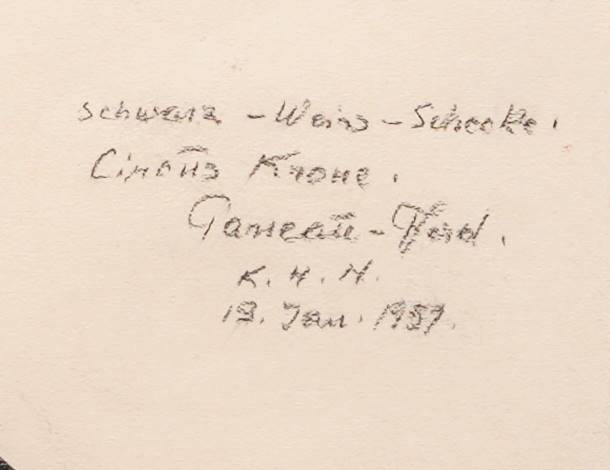 Schwarz - Weiss - Schecke.
Circus Krone.
Panneau - Pferd.
K. H. H.
19. Jan. 1937.